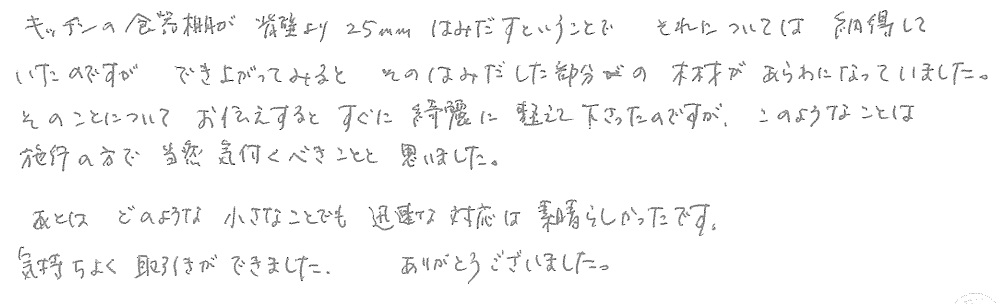 キッチンの食器棚が 背壁より 25mm はみだすということで それについては 納得して
いたのですが でき上がってみると そのはみだした部分の 木材が あらわになっていました。
そのことについて お伝えすると すぐに 綺麗に 整えて下さったのですが、このようなことは
施行の方で 当然 気付くべきことと 思いました。
あとは どのような 小さなことでも 迅速な 対応は 素晴らしかったです。
気持ちよく 取引きができました. ありがとうございました。